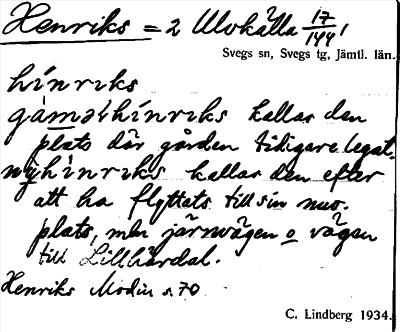 Henriks = 2 Ulvkälla 17/144 1
Svegs sn, Svegs tg, Jämtl. län.
hínriks
gáməlhínriks kallas den
plats där gården tidigare legat.
nýhìnriks kallas den efter
att ha flyttats till sin nuv.
plats, mln järnvägen o vägen
till Lillhärdal.
Henriks Modin s. 70
C. Lindberg 1934.